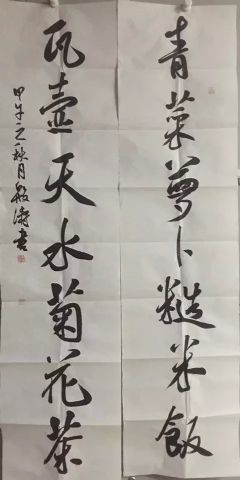 青菜萝卜糙米飯
瓦壶天水菊花茶
甲午之秋月敏涛书